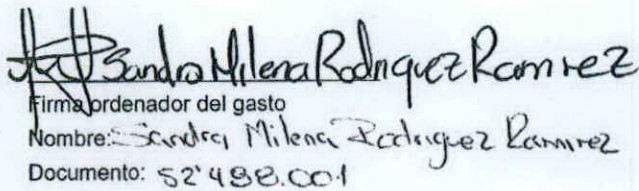 Sandra Milena Rodriguez Ramirez
Firma ordenador del gasto
Nombre: Sandra Milena Rodriguez Ramirez
Documento: 52'498.001